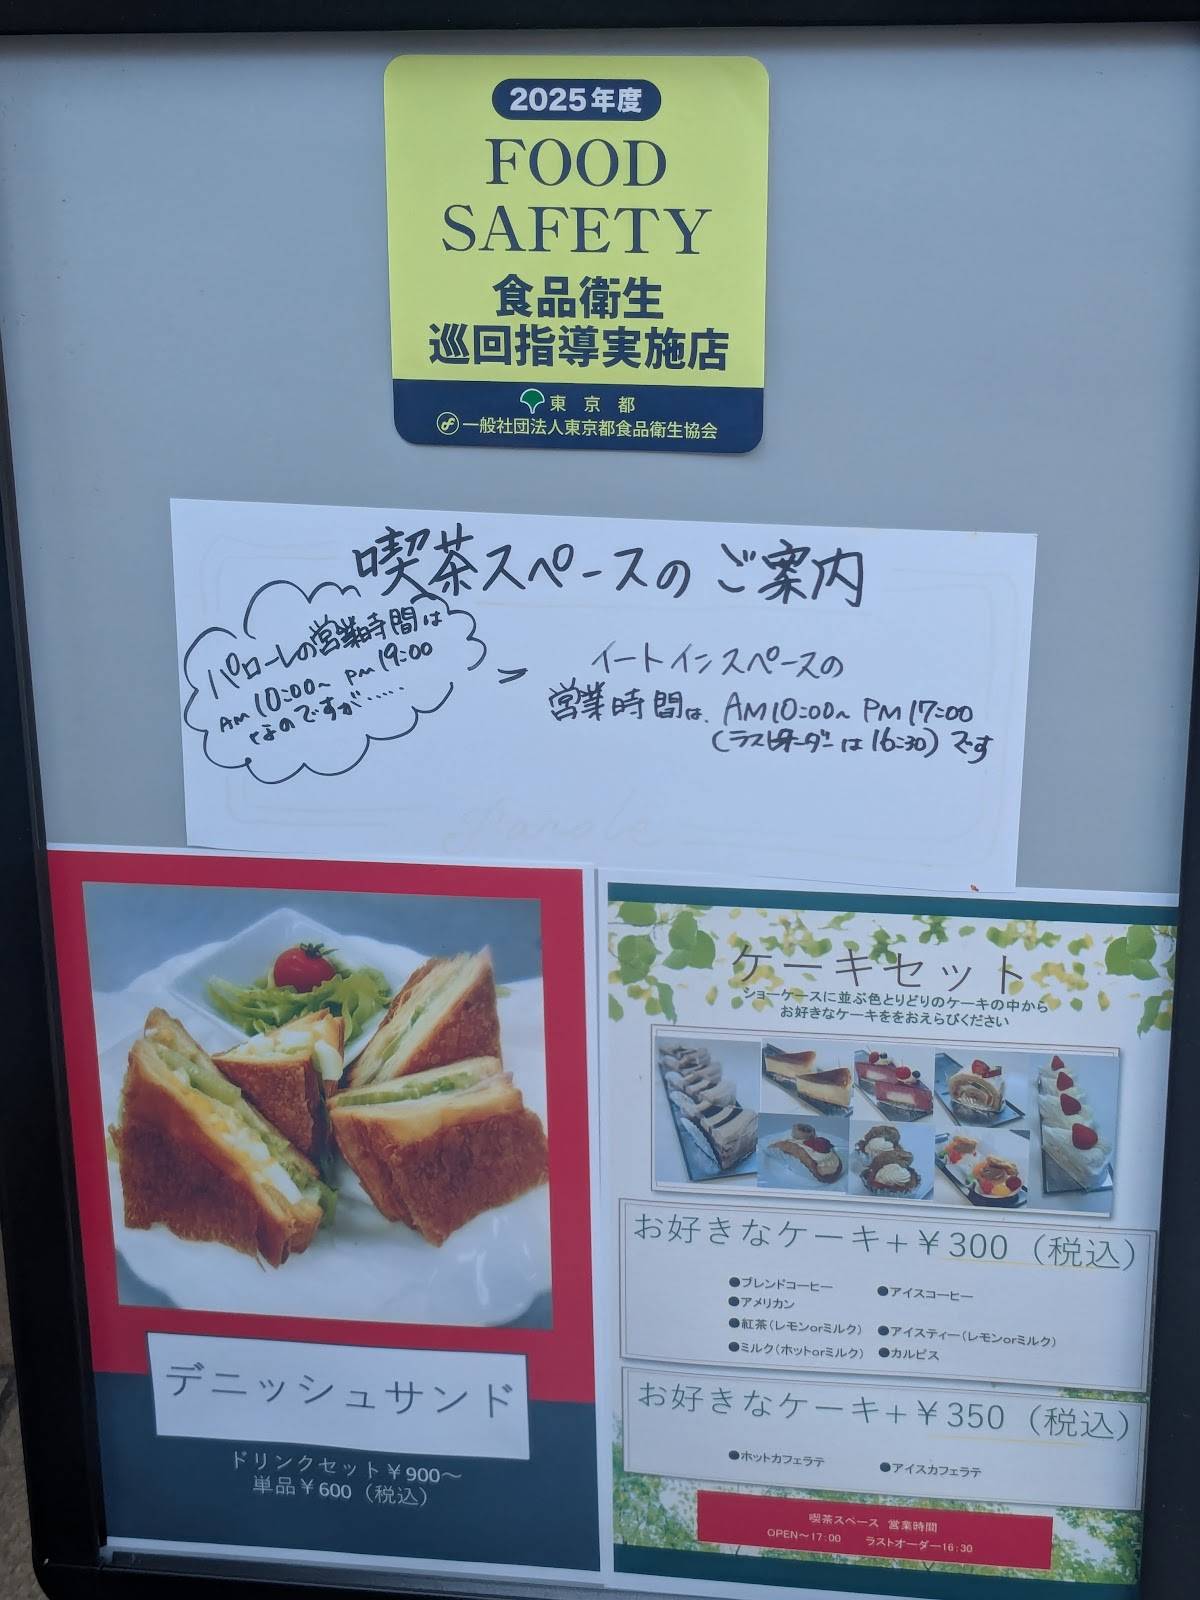 2025年度
FOOD
SAFETY
食品衛生
巡回指導実施店
東京都
一般社団法人東京都食品衛生協会
喫茶スペースのご案内
パローレの営業時間は
AM10:00〜PM19:00
なのですが……
イートインスペースの
営業時間は、AM10:00〜PM17:00
(ラストオーダーは16:30)です
Parole
デニッシュサンド
ドリンクセット¥900〜
単品¥600（税込）
ケーキセット
ショーケースに並ぶ色とりどりのケーキの中から
お好きなケーキををおえらびください
お好きなケーキ+¥300（税込）
●ブレンドコーヒー ●アイスコーヒー
●アメリカン
●紅茶(レモンorミルク) ●アイスティー(レモンorミルク)
●ミルク(ホットorミルク) ●カルピス
お好きなケーキ+¥350（税込）
●ホットカフェラテ ●アイスカフェラテ
喫茶スペース 営業時間
OPEN〜17:00 ラストオーダー16:30